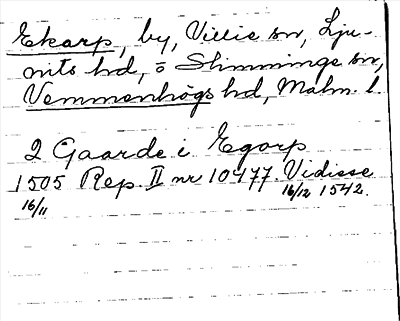 Ekarp, by, Villie sn, Lju-
nits hd, o Slimminge sn,
Vemmenhögs hd, Malm. l.
2 Gaarde i Egorp
1505 Rep. II nr 10477. Vidisse
16/11 16/12 1542.